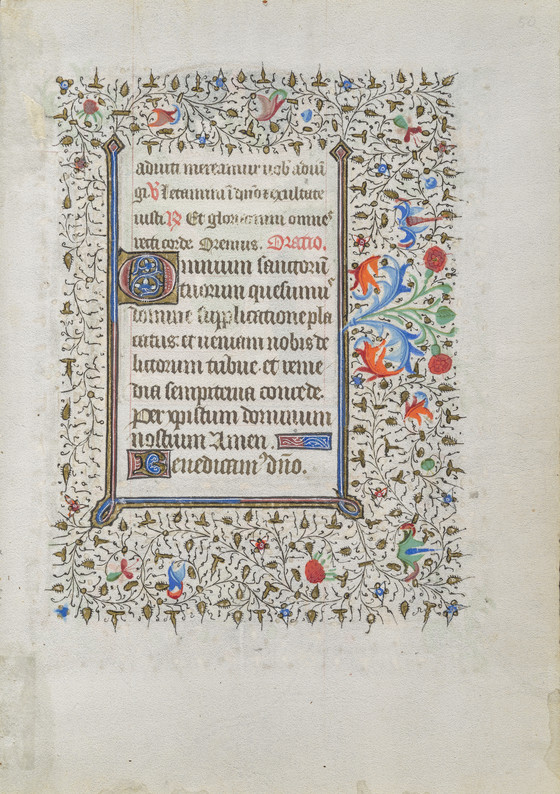 adiuti mereamur
gi. V Letamini ī dn̄o ⁊ exultate
iusti. R Et gloriamini omnes
recti corde. Oremus. Oratio.
Omnium sanctorū
tuorum quesumus
domine supplicatione pla
catus: et ueniam nobis de
lictorum tribue. et reme
dia sempiterna concede.
Per xp̄istum dominum
nostrum Amen.
Benedicamꝰ dn̄o.
50